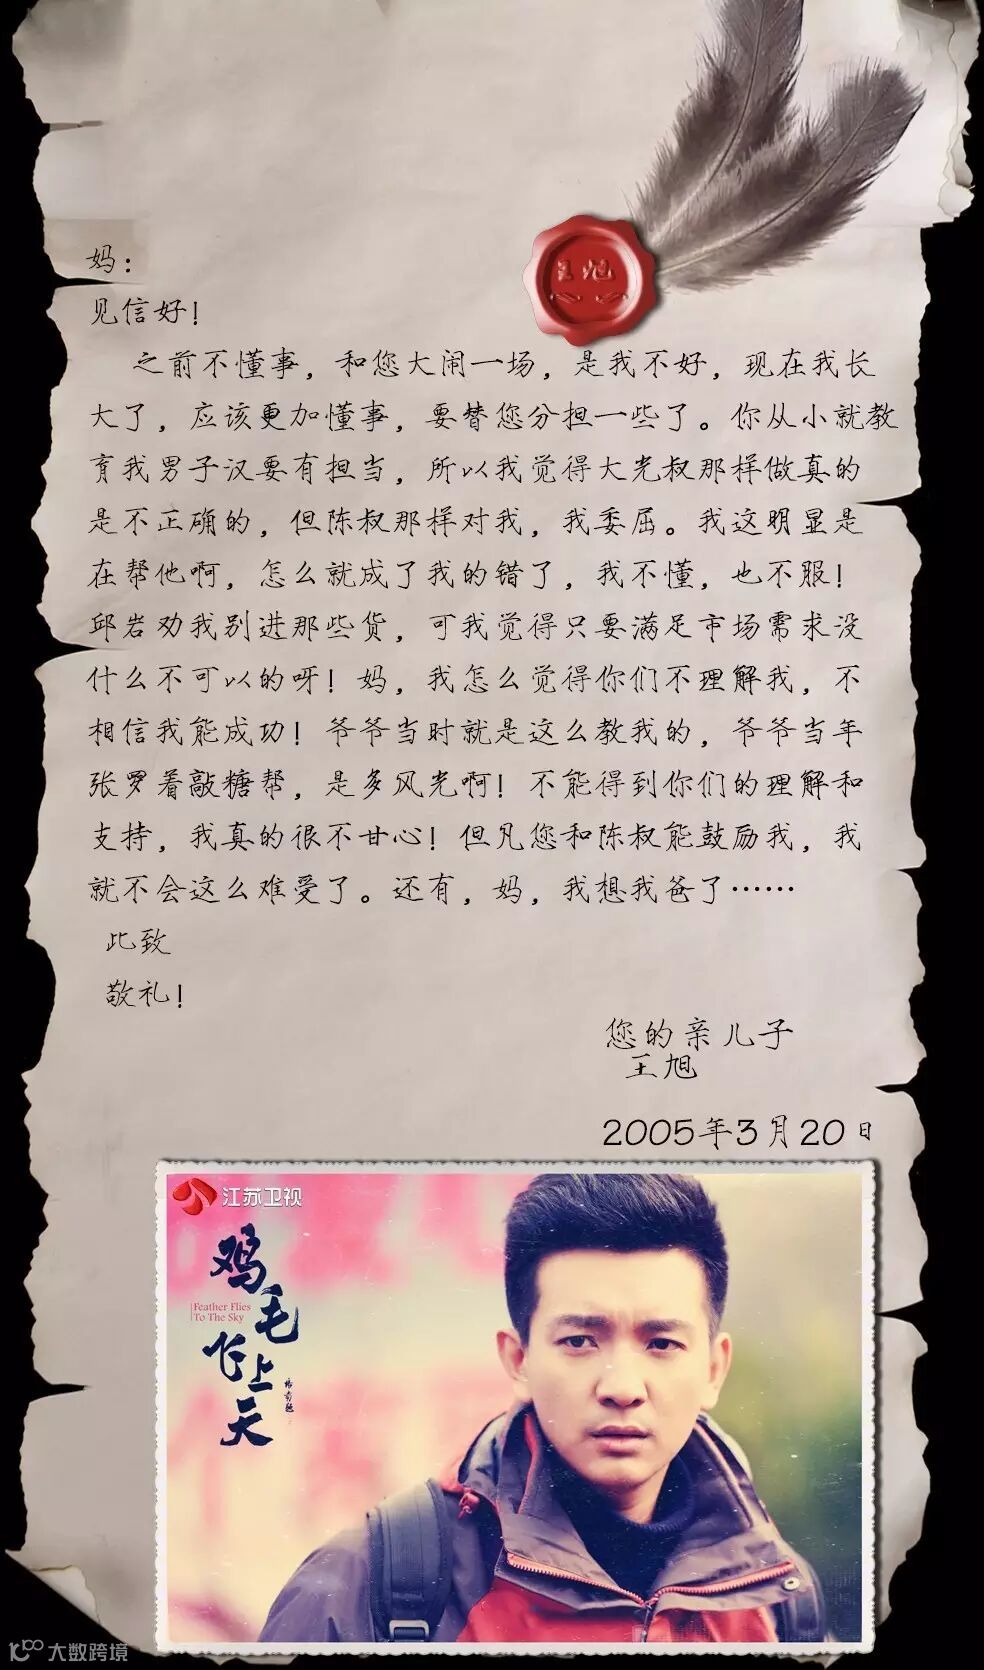 王旭
妈：
见信好！
之前不懂事，和您大闹一场，是我不好，现在我长
大了，应该更加懂事，要替您分担一些了。你从小就教
育我男子汉要有担当，所以我觉得大光叔那样做真的
是不正确的，但陈叔那样对我，我委屈。我这明显是
在帮他啊，怎么就成了我的错了，我不懂，也不服！
邱岩劝我别进那些货，可我觉得只要满足市场需求没
什么不可以的呀！妈，我怎么觉得你们不理解我，不
相信我能成功！爷爷当时就是这么教我的，爷爷当年
张罗着敲糖帮，是多风光啊！不能得到你们的理解和
支持，我真的很不甘心！但凡您和陈叔能鼓励我，我
就不会这么难受了。还有，妈，我想我爸了……
此致
敬礼！
您的亲儿子
王旭
2005年3月20日
江苏卫视
鸡毛飞上天
Feather Flies
To The Sky
大数跨境